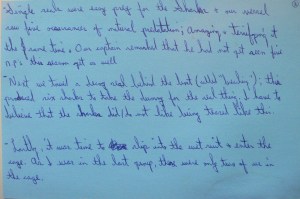 - Single seals were easy prey for the sharks & our vessel
saw five occurrences of natural predation; amazing & terrifying at
the same time. Our captain revealed that he had not yet seen five
n.p.s this season yet as well.
- Next we towed a decoy seal behind the boat (called "towing"); this
produced nine sharks to take the dummy for the real thing. I have to
believe that the sharks did not like being teased like this.
- Lastly, it was time to slip into the wet suit & enter the
cage. As I was in the last group, there were only two of us in
the cage.